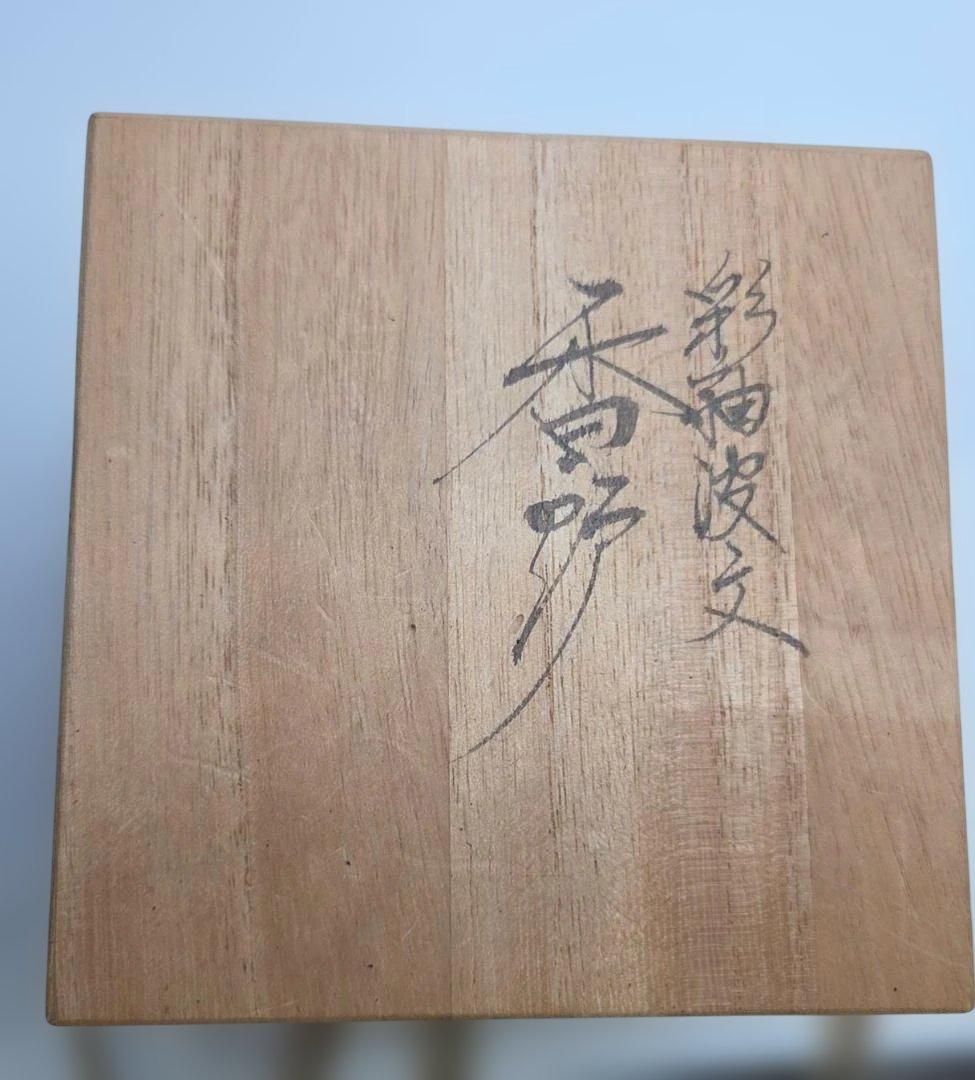 彩釉波文
香炉